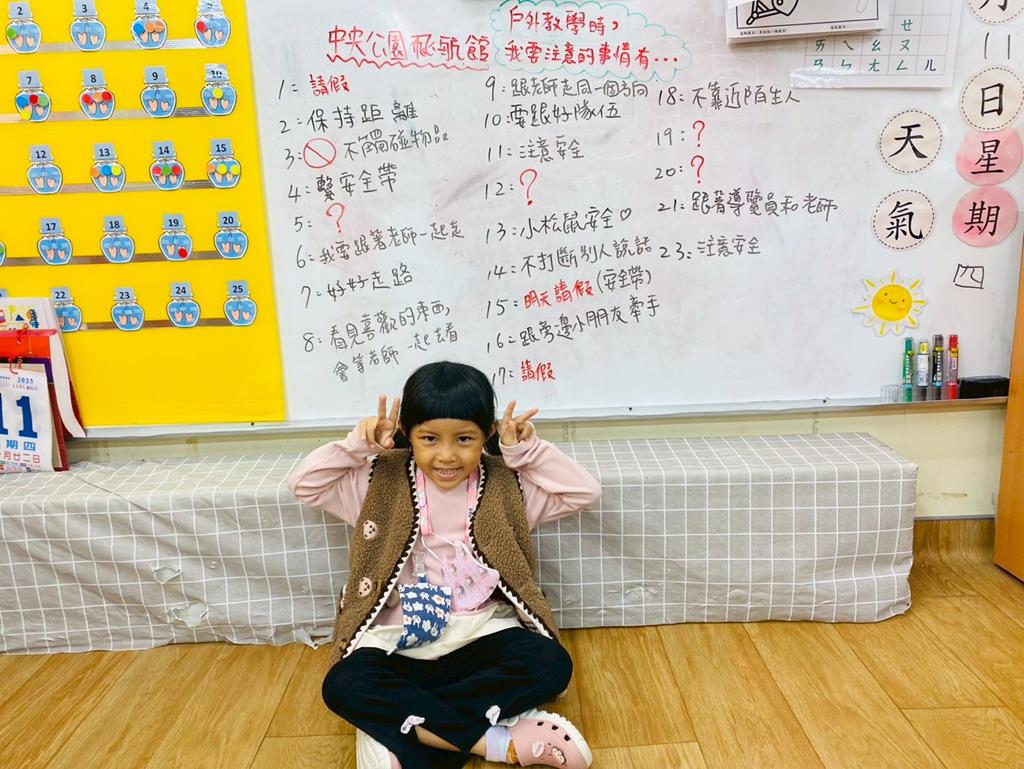 中央公園飛航館
戶外教學時，
我要注意的事情有...
1：請假
2：保持距離
3：不觸碰物品
4：繫安全帶
5：？
6：我要跟著老師一起走
7：好好走路
8：看見喜歡的東西，
會等老師一起去看
9：跟老師走同一個方向
10：要跟好隊伍
11：注意安全
12：？
13：小松鼠安全♡
14：不打斷別人說話
15：明天請假(安全帶)
16：跟旁邊小朋友牽手
17：請假
18：不靠近陌生人
19：？
20：？
21：跟著導覽員和老師
23：注意安全
ㄝ
ㄞ ㄟ ㄠ ㄡ
ㄢ ㄣ ㄤ ㄥ ㄦ
月
11
日
天氣
星期
四
2 3 4 5
7 8 9 10
12 13 14 15
17 18 19 20
22 23 24 25
2025
11
期四
月廿二日